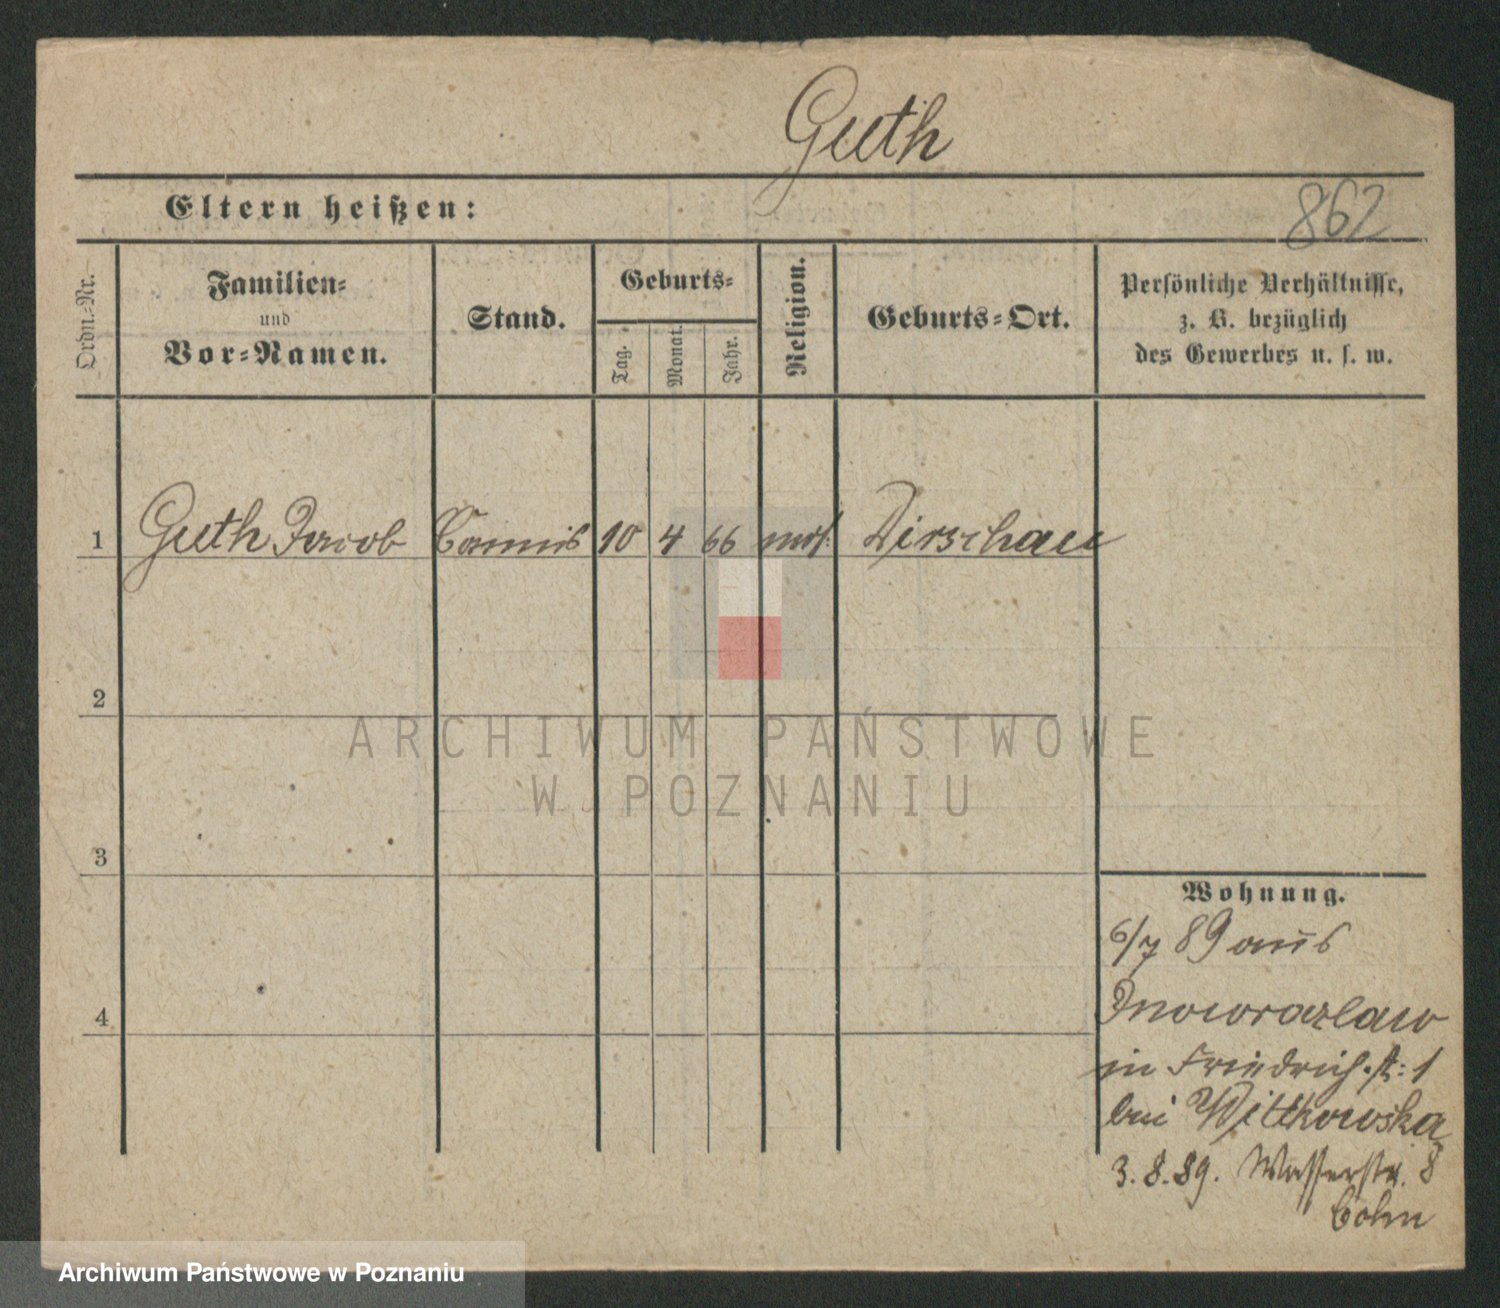 Guth
Eltern heißen:
862
Ordn.-Nr.
Familien-
und
Vor-Namen.
Stand.
Geburts-
Tag.
Monat.
Jahr.
Religion.
Geburts-Ort.
Persönliche Verhältnisse,
z. B. bezüglich
des Gewerbes u. s. w.
1 Guth Jacob Commis 10 4 66 mos. Dirschau
2
3
4
Wohnung.
6/7 89 aus
Inowrazlaw
in Friedrich.st: 1
bei Wittkowska
3. 8. 89. Wasserstr. 8
Cohn
ARCHIWUM PAŃSTWOWE
W POZNANIU
Archiwum Państwowe w Poznaniu